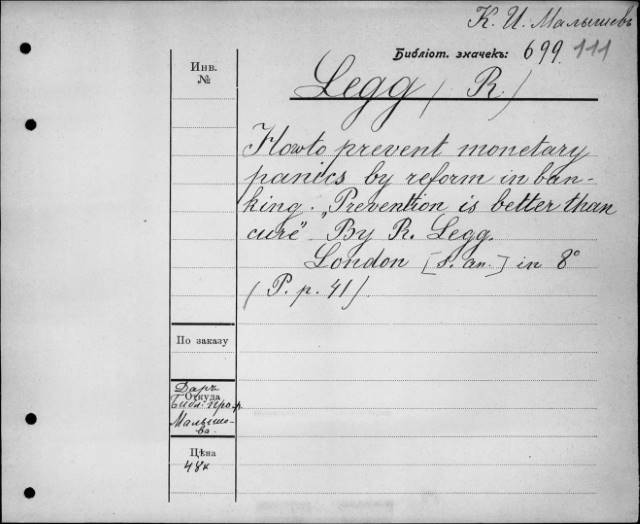 К. И. Малышевъ
Библіот. значекъ: 699. 111
Инв.
№
Legg (R.)
How to prevent monetary
panics by reform in ban-
king. „Prevention is better than
cure" By R. Legg.
London [s. an.] in 8°
(P. p. 41)
По заказу
Откуда
Даръ
Библ. проф.
Малыше-
ва.
Цѣна
48к